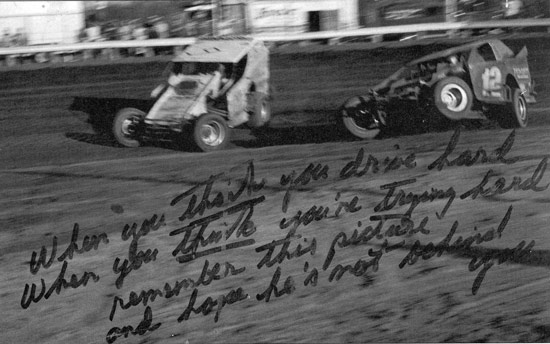 12
When you think you drive hard
When you think you're trying hard
remember this picture
and hope he's not behind
you